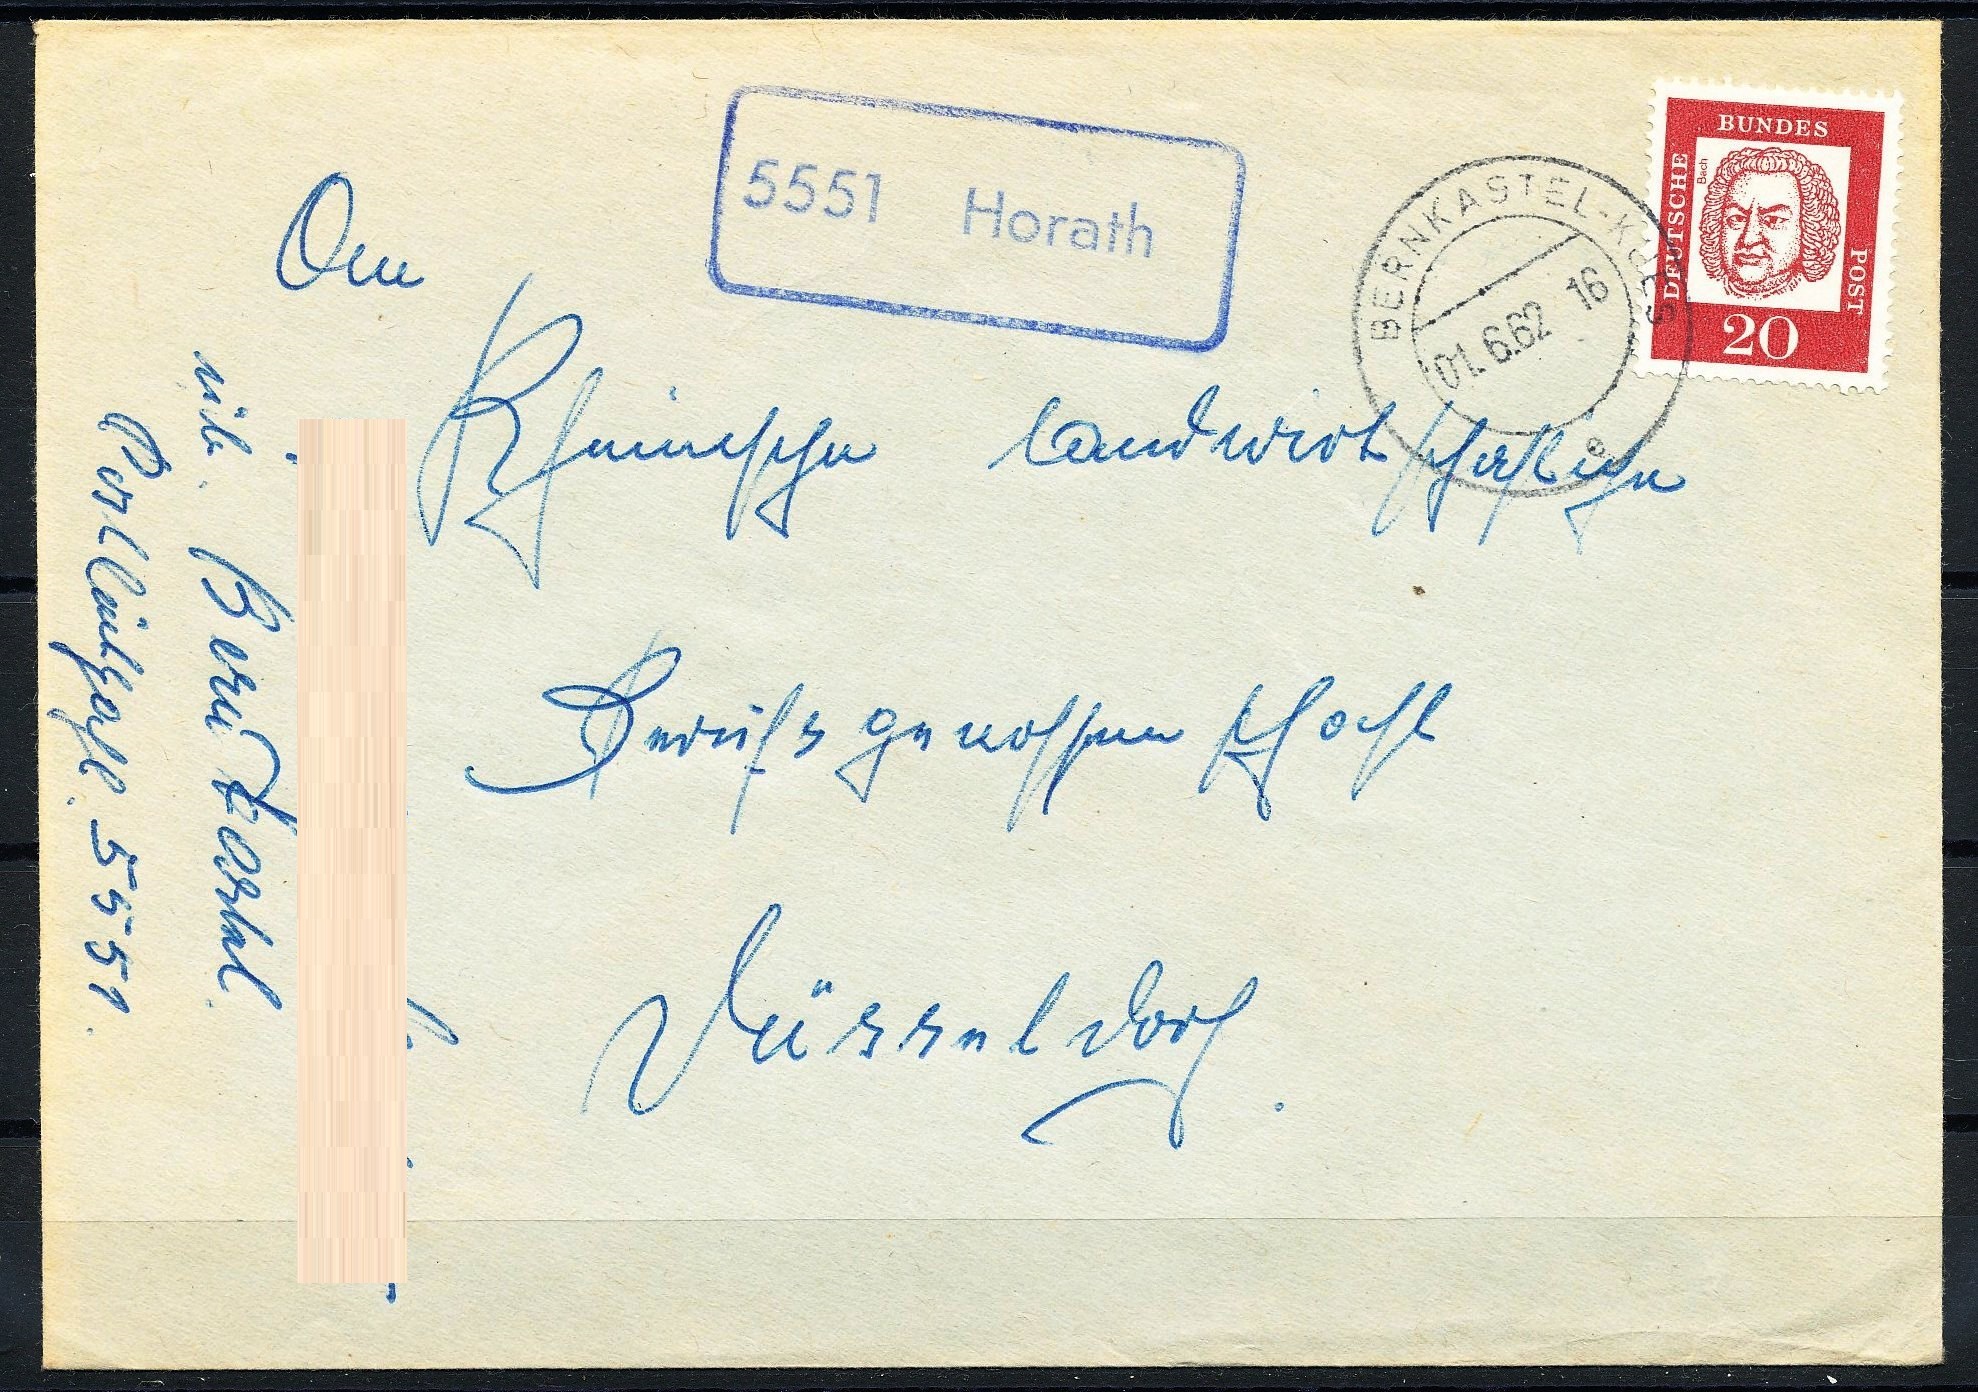 5551 Horath
BERNKASTEL-KUES
01.6.62 16
e
DEUTSCHE BUNDES POST
Bach
20
An
Rheinische Landwirtschaftliche
Berufsgenossenschaft
Düsseldorf.
üb. Bernkastel.
Postleitzahl. 5551.